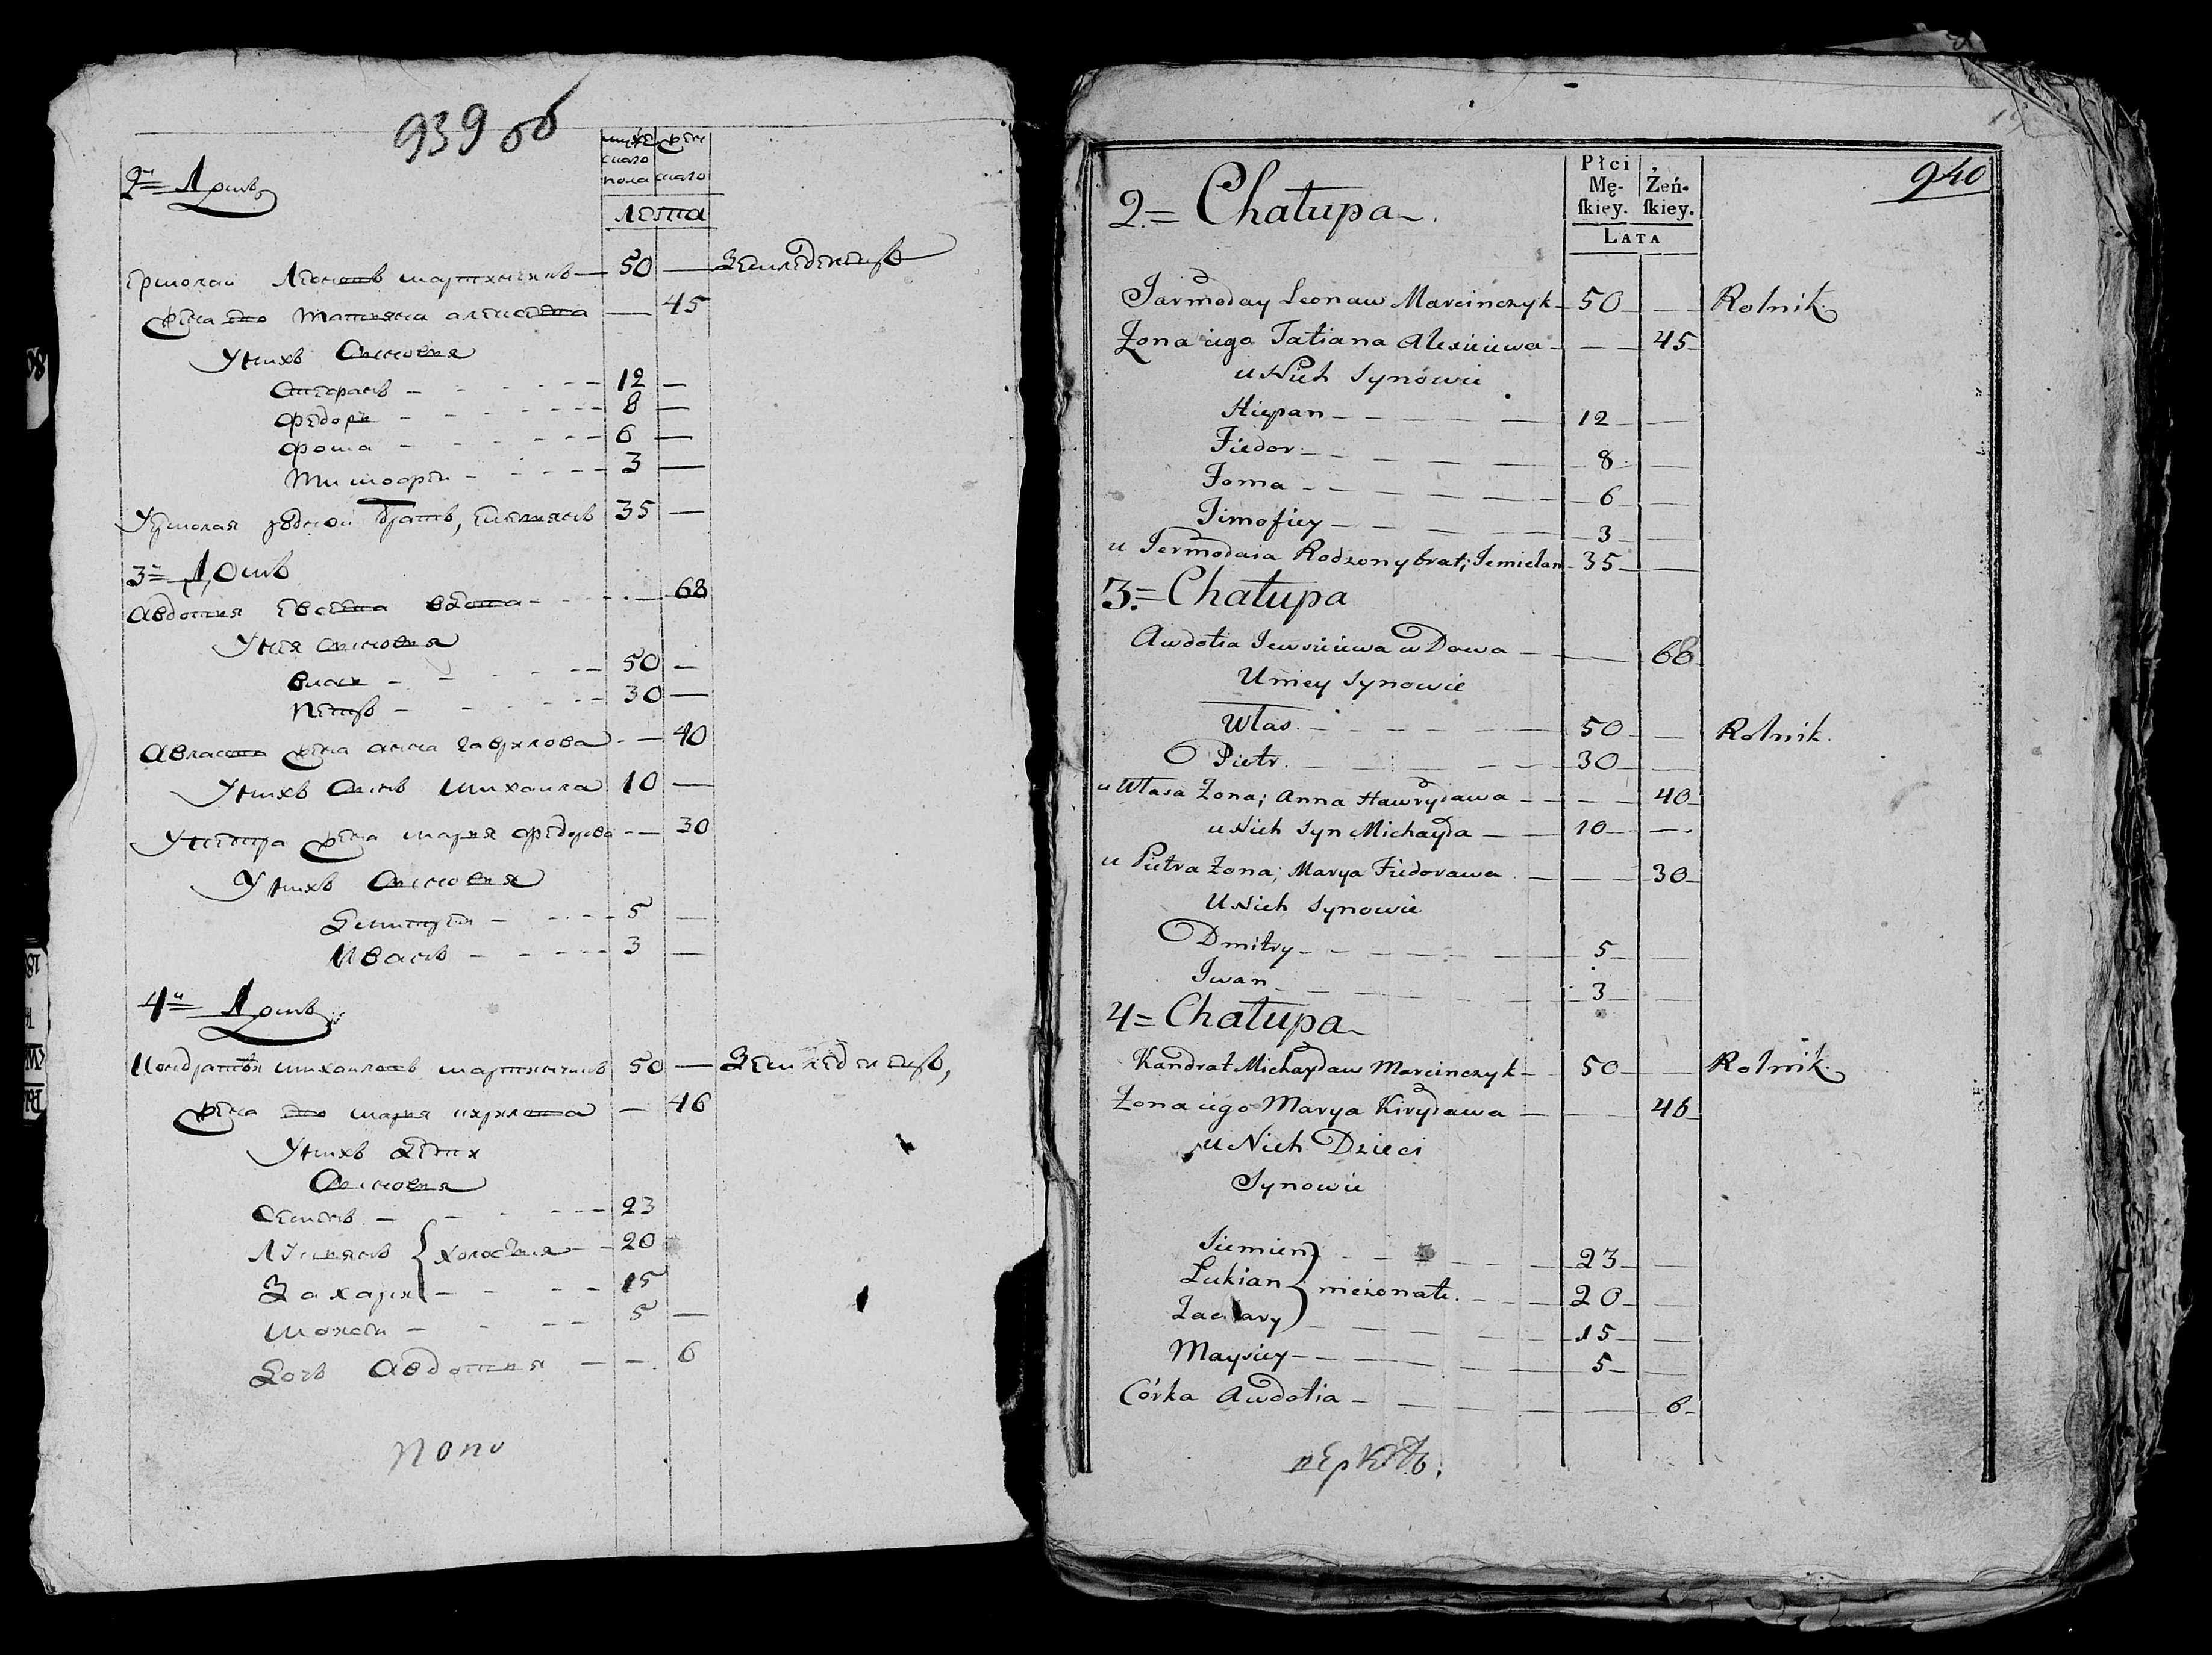 939 об
мужескаго пола
женскаго
Лета
2й Домъ
Ермолай Леоновъ мартинчикъ 50 — Земледелецъ
жена его татьяна алексеева — 45
У нихъ Сыновья
Степанъ 12 —
Федоръ 8 —
Фома 6 —
Тимофей 3 —
У Ермолая родной братъ, Емельянъ 35 —
3й Домъ
Авдотья Евсеева вдова — 68
У нея сыновья
Власъ 50 —
Петръ 30 —
У власа жена анна гаврилова — 40
У нихъ Сынъ Михаила 10 —
У петра жена марья федорова — 30
У нихъ Сыновья
Дмитрей 5 —
Иванъ 3 —
4й Домъ
Кондратей михаиловъ мартинчикъ 50 — Земледелецъ,
жена его марья кирилова — 46
У нихъ дети
Сыновья
Семенъ 23
Лукьянъ } холостыя 20
Захарей 15
Мосей 5 —
Дочь Авдотья — 6
попъ
940
Płci Mę-ſkiey.
Żeń-ſkiey.
LATA
2.= Chałupa
Jarmołay Leonaw Marcinczyk 50 — Rolnik
Żona iego Tatiana Alexieiewa — 45
u Nich Synowie
Stiepan 12 —
Fiedor 8 —
Foma 6 —
Timofiey 3 —
u Jermołaia Rodzony brat; Jemielan 35 —
3.= Chałupa
Awdotia Jewsieiewa wDowa — 68
U niey Synowie
Włas 50 — Rolnik.
Pietr. 30 —
u Własa Żona; Anna Hawryława — 40
u Nich Syn Michayła 10 —
u Pietra Żona; Marya Fiedorawa — 30
U Nich Synowie
Dmitry 5 —
Iwan 3 —
4= Chałupa
Kandrat Michayław Marcinczyk 50 — Rolnik
Żona iego Marya Kiryława — 46
u Nich Dzieci
Synowie
Siemien 23 —
Lukian } nieżonate. 20 —
Zachary 15 —
Maysiey 5 —
Córka Awdotia — 6